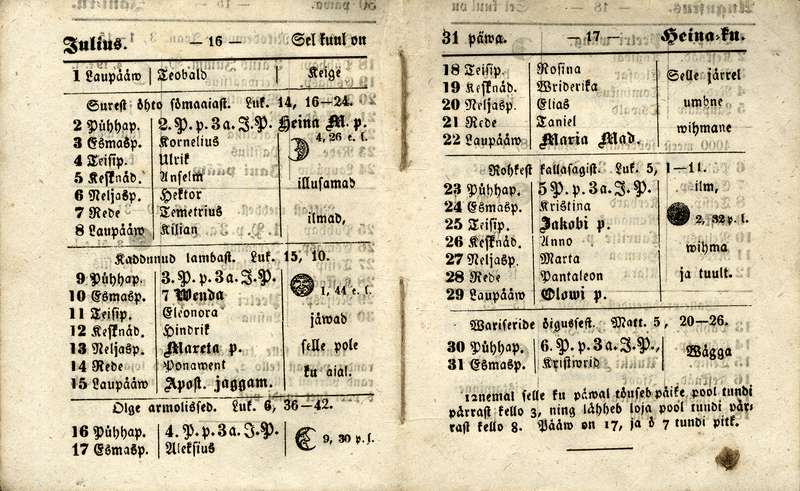 Julius. — 16 — Sel kuul on
1 Laupääw Teobald Keige
Surest õhto sömaaiast. Luk. 14, 16—24.
2 Pühhap. 2. P. p. 3 a. J. P. Heina M. p.
3 Esmasp. Kornelius 4, 26 e. l.
4 Teisip. Ulrik
5 Kesknäd. Anselm illusamad
6 Neljasp. Hektor
7 Rede Temetrius ilmad,
8 Laupääw Kilian
Kaddunud lambast. Luk. 15, 10.
9 Pühhap. 3. P. p. 3 a. J. P.
10 Esmasp. 7 Wenda 1, 44 e. l.
11 Teisip. Eleonora
12 Kesknäd. Hindrik jäwad
13 Neljasp. Mareta p. selle pole
14 Rede Ponawent ku aial.
15 Laupääw Apost. jaggam.
Olge armolissed. Luk. 6, 36—42.
16 Pühhap. 4. P. p. 3 a. J. P. 9, 30 p. l.
17 Esmasp. Aleksius
31 päwa. — 17 — Heina-ku.
18 Teisip. Rosina Selle järrel
19 Kesknäd. Wriderika
20 Neljasp. Elias umbne
21 Rede Taniel
22 Laupääw Maria Mad. wihmane
Rohkest kallasagist. Luk. 5, 1—11.
23 Pühhap. 5 P. p. 3 a. J. P. ilm,
24 Esmasp. Kristina
25 Teisip. Jakobi p. 2, 32 p. l.
26 Kesknäd. Anno wihma
27 Neljasp. Marta
28 Rede Pantaleon ja tuult.
29 Laupääw Olowi p.
Wariseride õigussest. Matt. 5, 20—26.
30 Pühhap. 6. P. p. 3 a. J. P., Wägga
31 Esmasp. Kristwrid
12nemal selle ku päwal tõuseb päike pool tundi
pärrast kello 3, ning lähheb loja pool tundi pär-
rast kello 8. Pääw on 17, ja ö 7 tundi pitk.